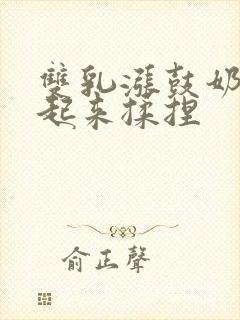 雙乳漲鼓奶
起来揉捏
俞正聲